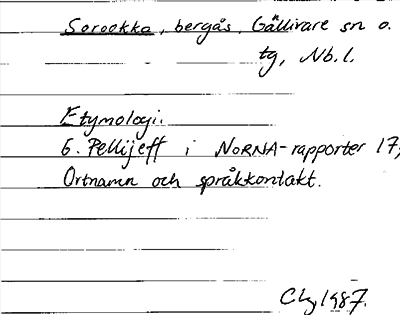 Sorookka, bergås, Gällivare sn o.
tg, Nb. l.
Etymologi.
G. Pellijeff i NORNA-rapporter 17,
Ortnamn och språkkontakt.
1987.